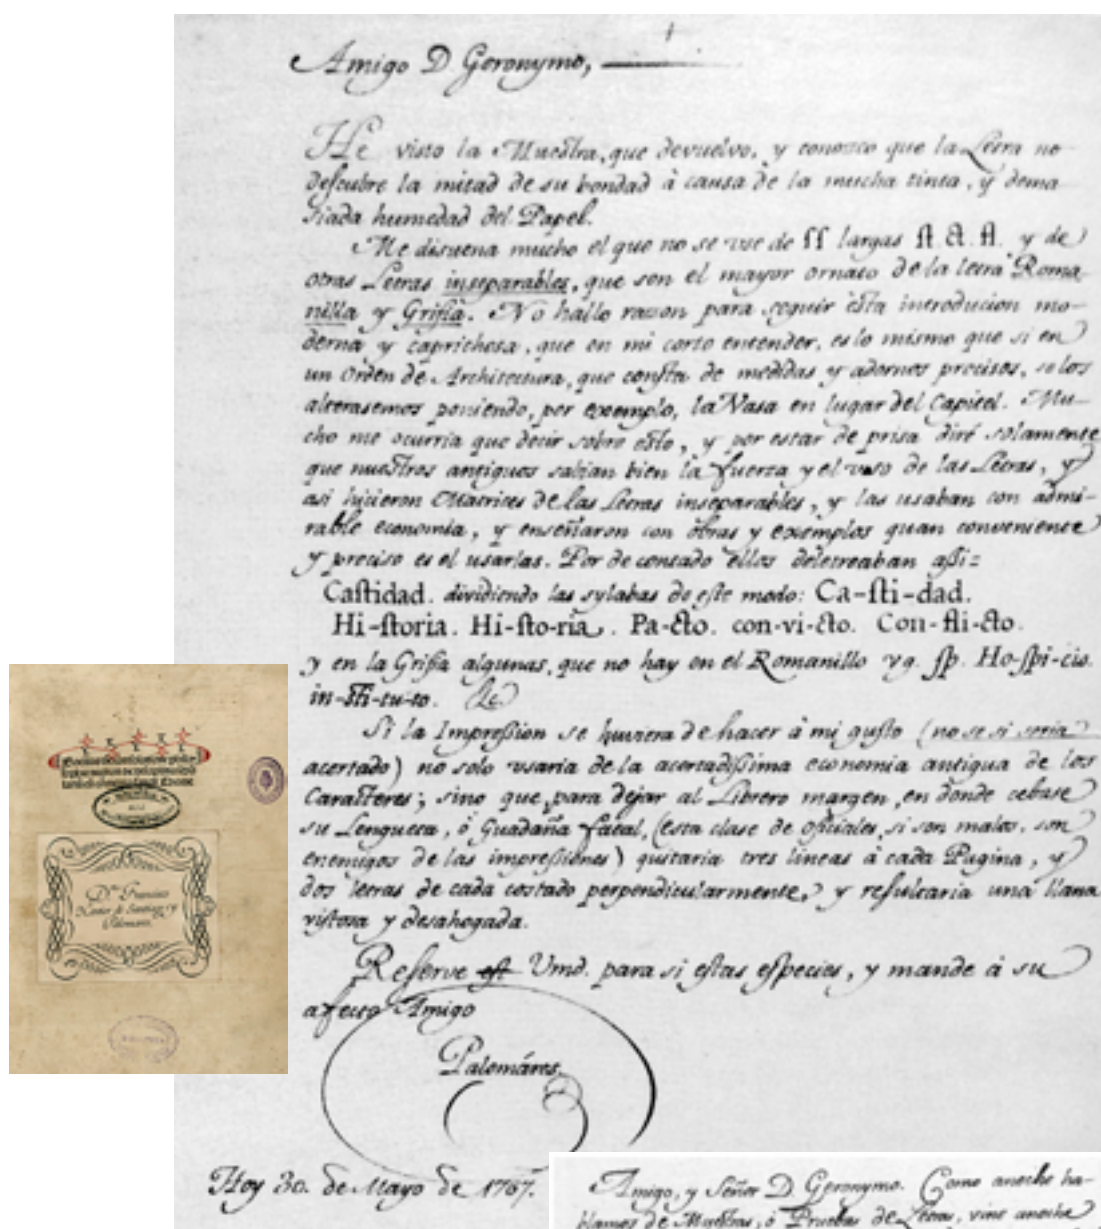 Amigo D Geronymo,
He visto la Muestra, que devuelvo, y conozco que la Letra no
descubre la mitad de su bondad à causa de la mucha tinta, y dema-
siada humedad del Papel.
Me disuena mucho el que no se use de ſſ largas ſt. ct. fl. y de
otras Letras inseparables, que son el mayor ornato de la letra Roma-
nilla y Grifia. No hallo razon para seguir esta introducion mo-
derna y caprichosa, que en mi corto entender, es lo mismo que si en
un Orden de Architectura, que conſta de medidas y adornos precisos, se los
alterasemos poniendo, por exemplo, la Vasa en lugar del Capitel. Mu-
cho me ocurria que decir sobre esto, y por estar de prisa diré solamente
que nuestros antiguos sabian bien la fuerza y el uso de las Letras, y
asi hicieron Matrices de las Letras inseparables, y las usaban con admi-
rable economia, y enseñaron con obras y exemplos quan conveniente
y preciso es el usarlas. Por de contado ellos deletreaban aſsi=
Caſtidad. dividiendo las sylabas de eſte modo: Ca-ſti-dad.
Hi-ſtoria. Hi-ſto-ria. Pa-cto. con-vi-cto. Con-fli-cto.
y en la Grifia algunas, que no hay en el Romanillo vg. ſp. Ho-ſpi-cio.
in-sti-tu-to.
Si la Impreſsion se huviera de hacer à mi guſto (no se si seria
acertado) no solo usaria de la acertadiſsima economia antigua de los
Caracteres; sino que para dejar al Librero margen, en donde cebase
su Lengueta, ò Guadaña fatal, (esta clase de oficiales, si son malos, son
enemigos de las impreſsiones) quitaria tres lineas à cada Pagina, y
dos letras de cada costado perpendicularmente, y reſultaria una llana
viſtosa y desahogada.
Reſerve eſt Vmd. para si eſtas eſpecies, y mande à su
afecto Amigo
Palomáres.
Hoy 30. de Mayo de 1767.
Dn. Francisco
Xavier de Santiago y
Palomares.
Amigo, y Señor D. Geronymo. Como anoche ha-
blamos de Muestras, ò Pruebas de Letras, vine anoche